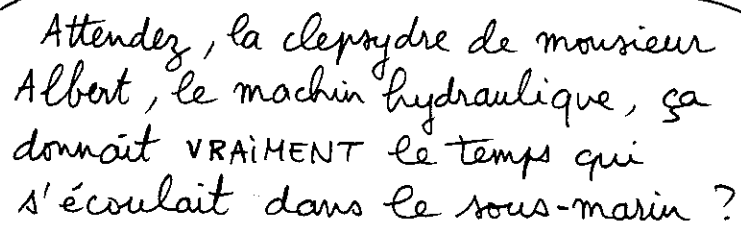 Attendez, la clepsydre de monsieur
Albert, le machin hydraulique, ça
donnait VRAiMENT le temps qui
s'écoulait dans le sous-marin ?